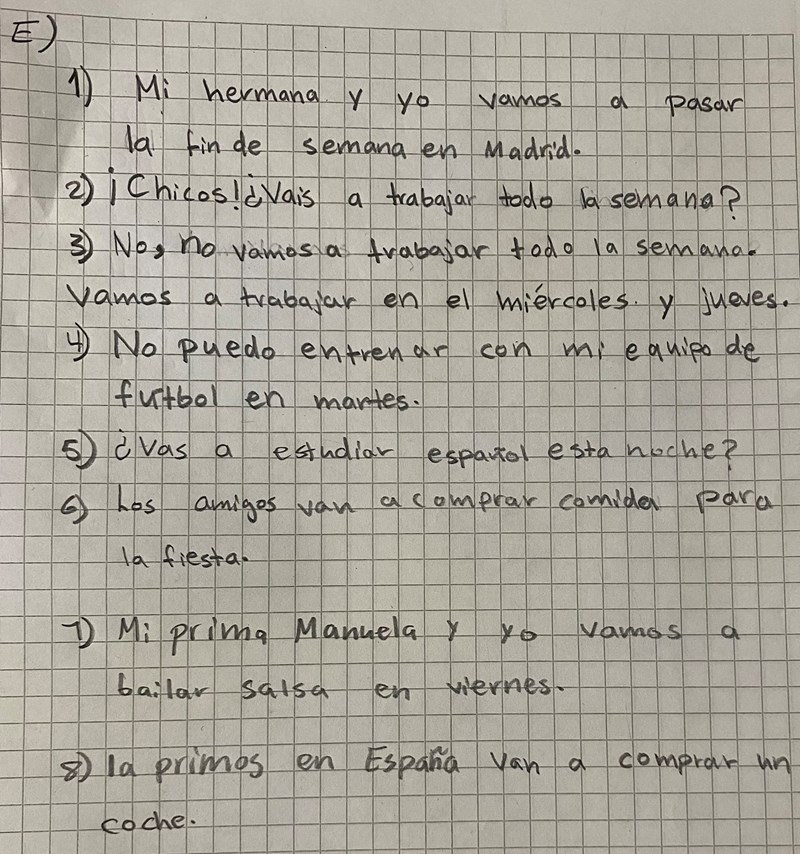 E)
1) Mi hermana y yo vamos a pasar
la fin de semana en Madrid.
2) ¡Chicos! ¿Vais a trabajar todo la semana?
3) No, no vamos a trabajar todo la semana.
Vamos a trabajar en el miércoles. y jueves.
4) No puedo entrenar con mi equipo de
futbol en martes.
5) ¿Vas a estudiar español esta noche?
6) Los amigos van a comprar comida para
la fiesta.
7) Mi prima Manuela y yo vamos a
bailar salsa en viernes.
8) la primos en España van a comprar un
coche.